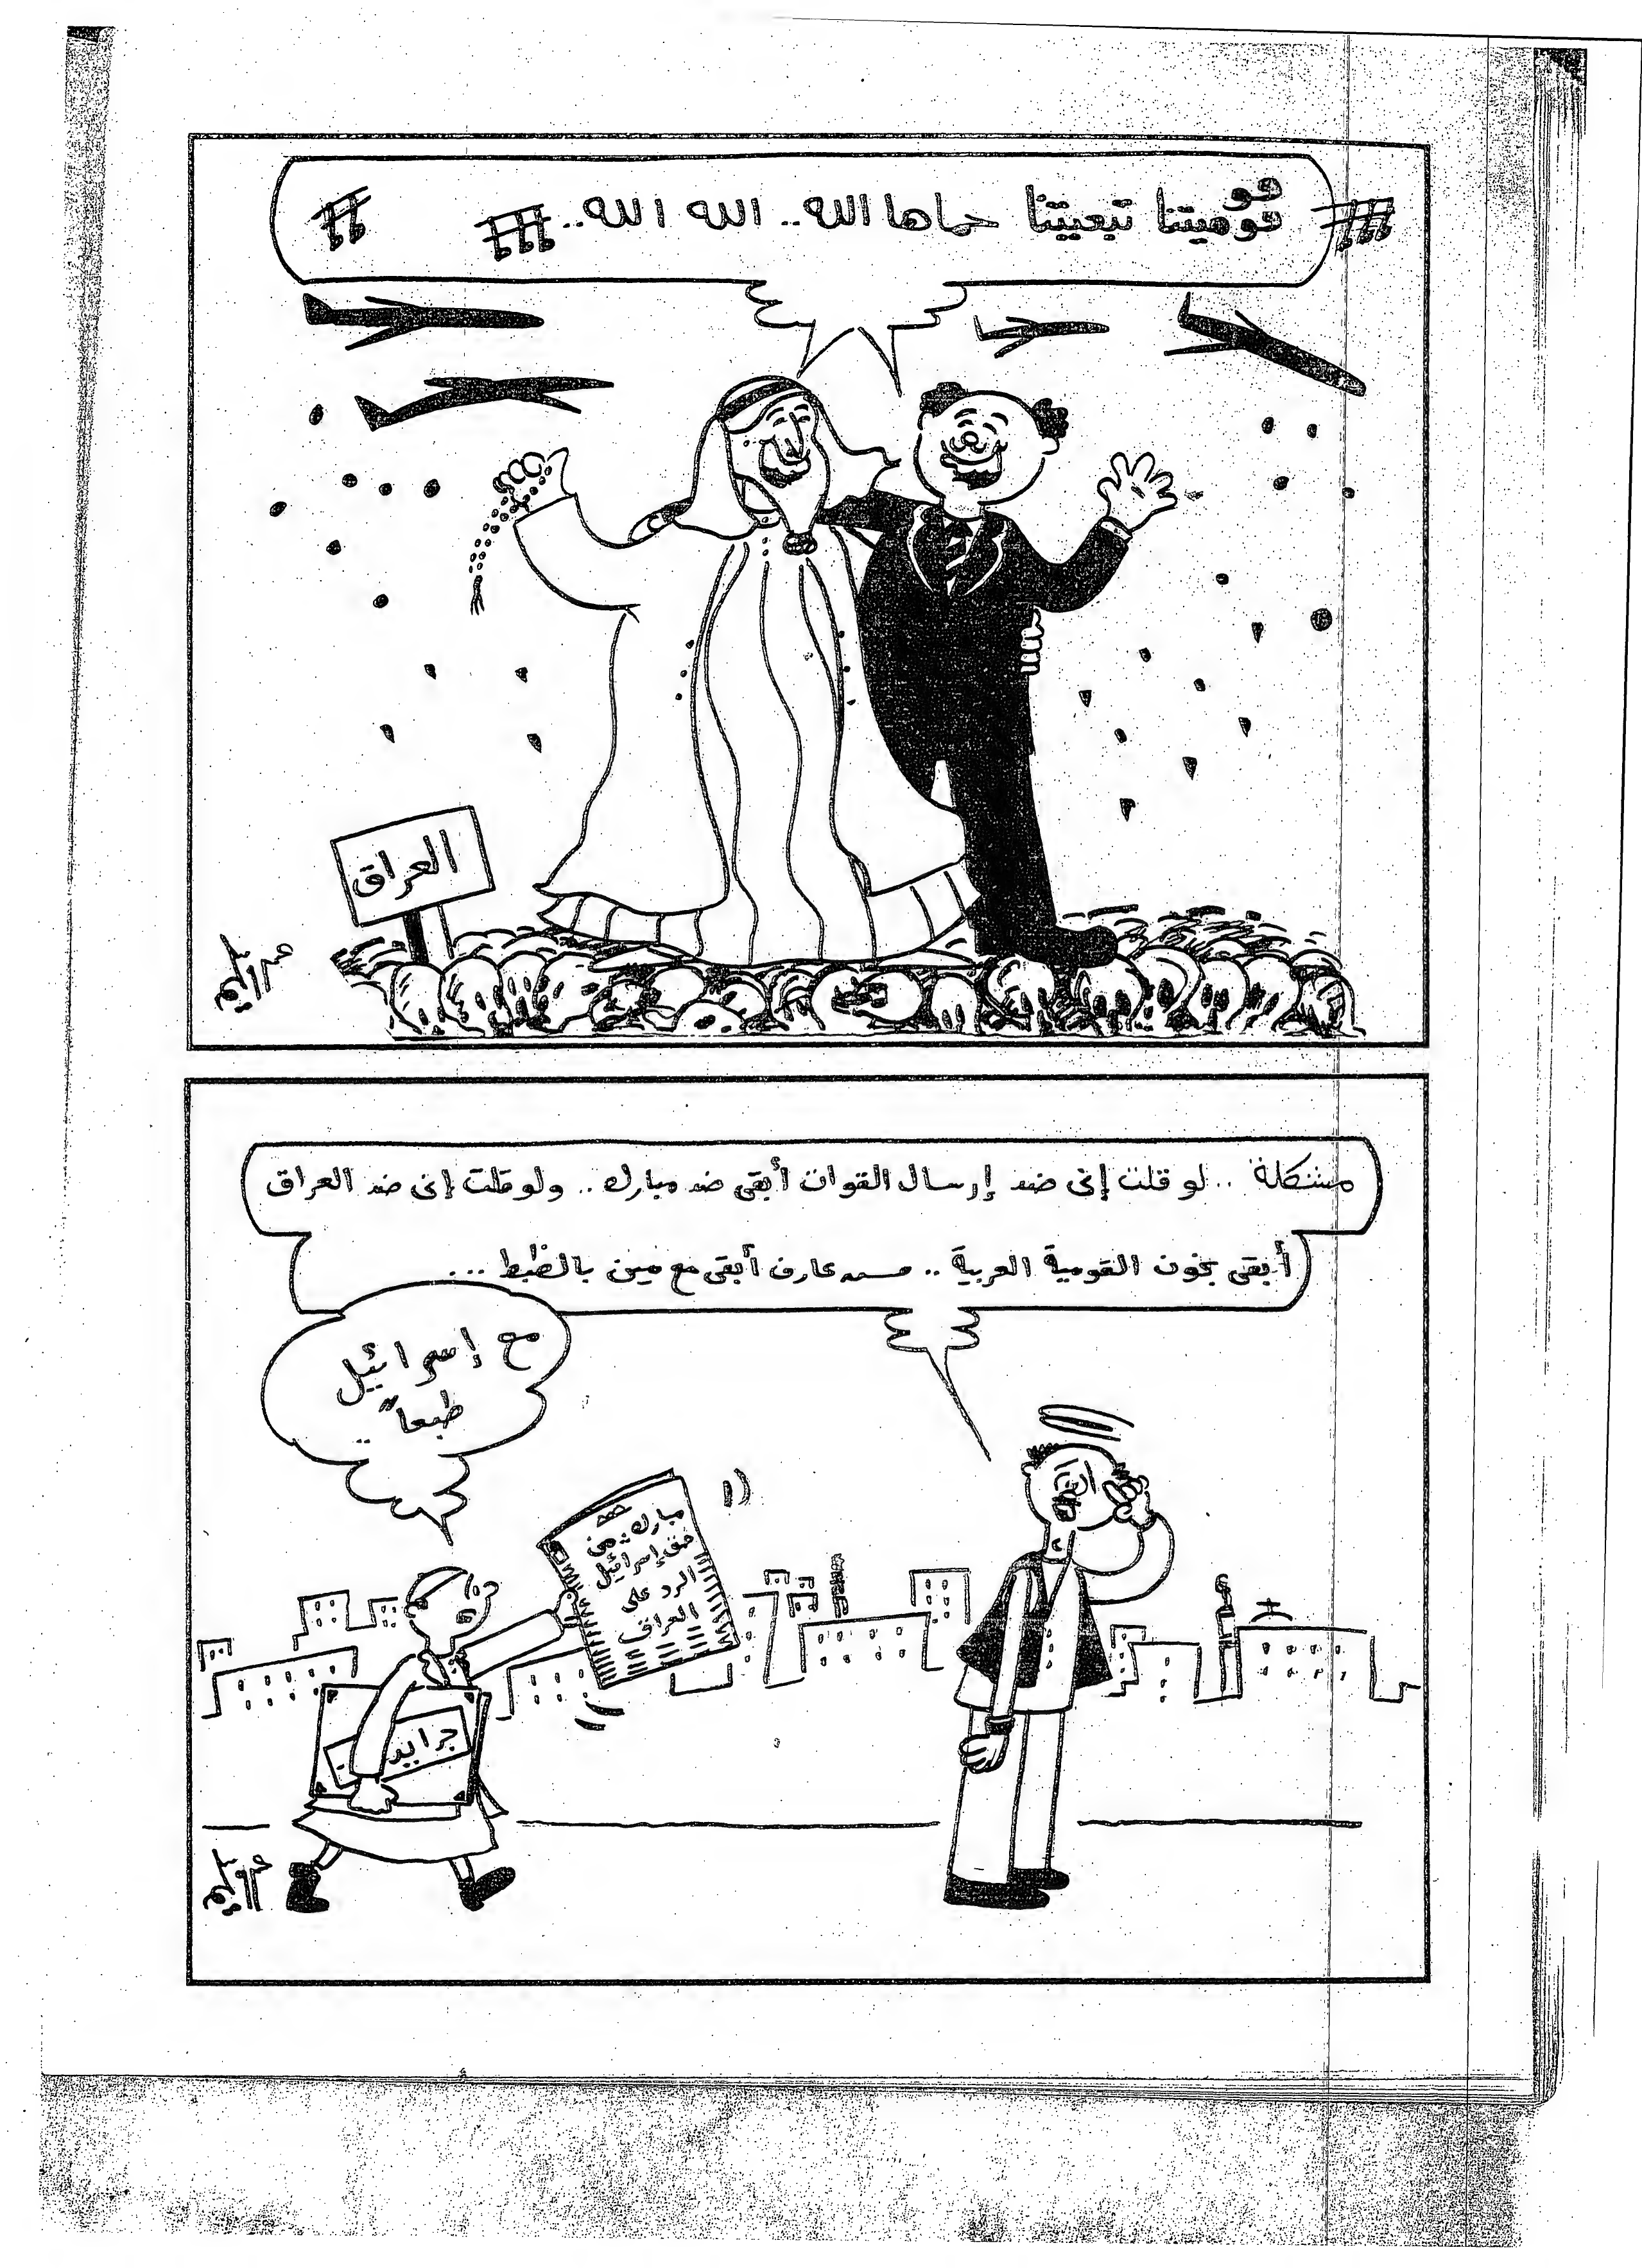 قوميتنا تبعيتنا حماها الله.. الله الله..
العراق
عمرو سليم
مشكلة .. لو قلت إنى ضد إرسال القوات أبقى ضد مبارك .. ولو قلت إنى ضد العراق
أبقى بخون القومية العربية .. مش عارف أبقى مع مين بالظبط ...
مع إسرائيل
طبعاً ..
مبارك: من
حق إسرائيل
الرد على
العراق
جرايد
عمرو سليم